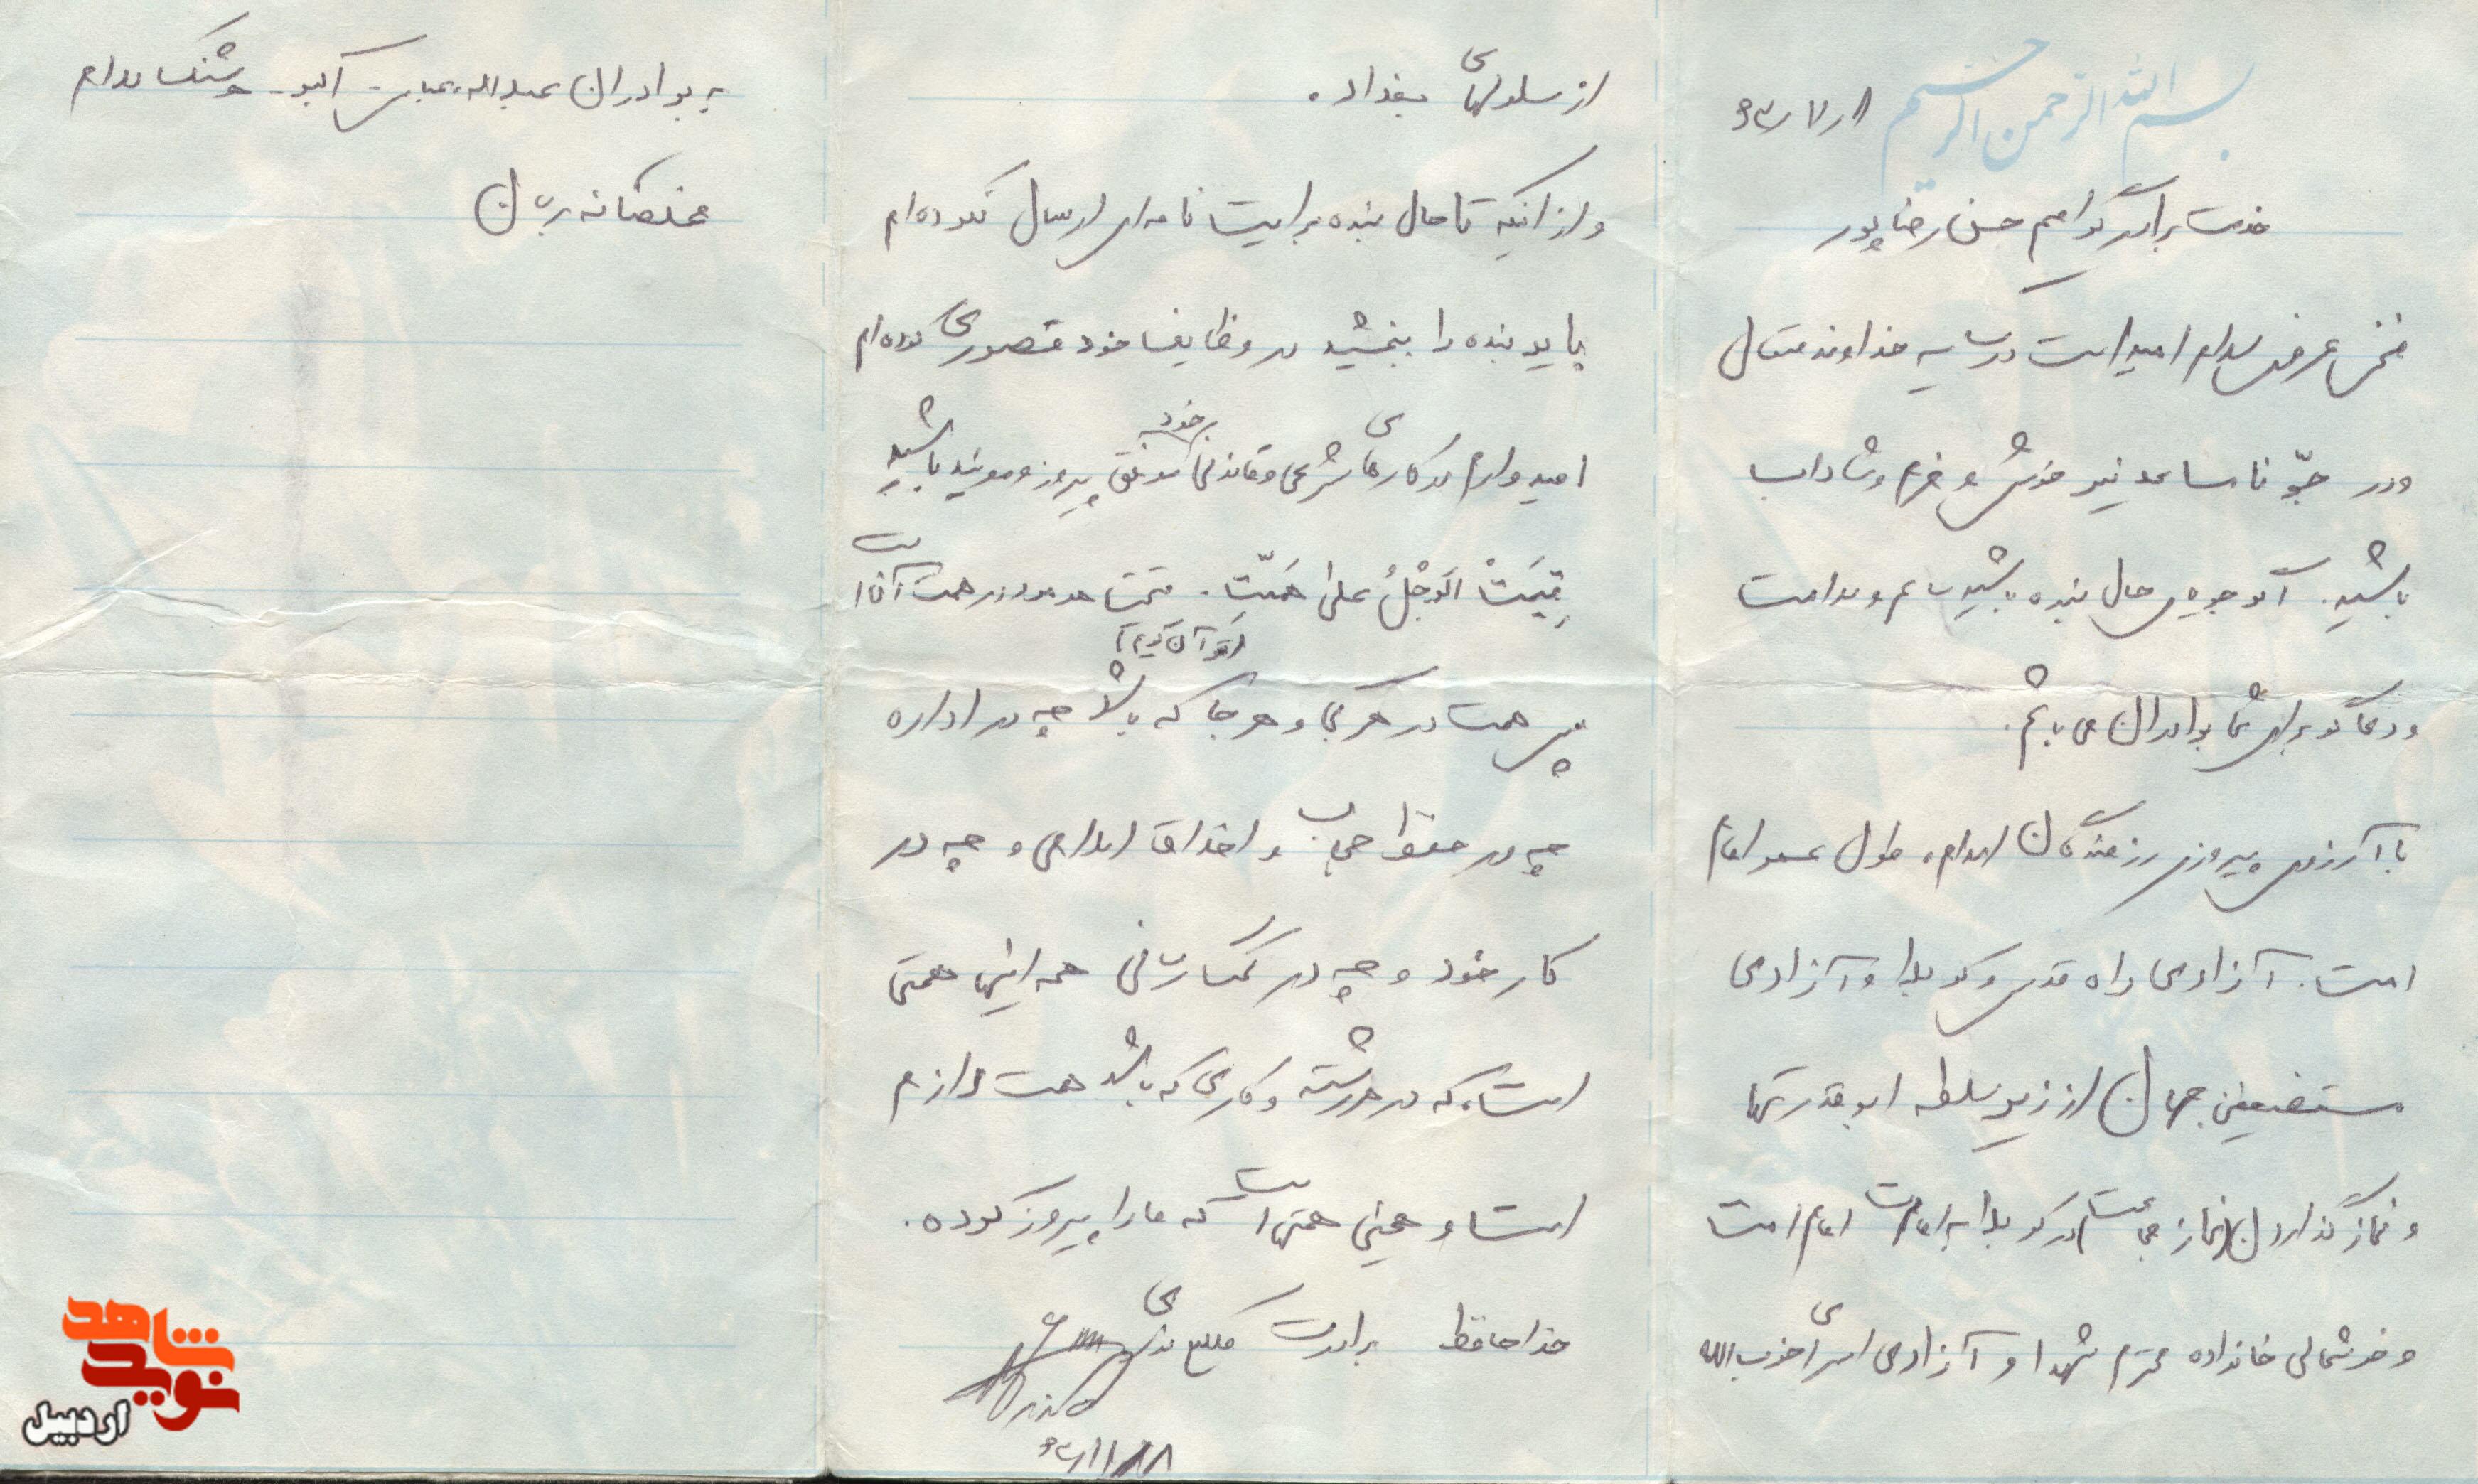 بسم الله الرحمن الرحیم
خدمت برادر گرامیم حسن رضاپور
ضمن عرض سلام امید است در سایه خداوند متعال
و در جوّ نامساعد نیز خوش و خرم و شاداب
باشید. اگر جویای حال بنده باشید سالم و سلامت
و دعاگو برای شما برادران می باشم.
با آرزوی پیروزی رزمندگان اسلام، طول عمر امام
امت. آزادی راه قدس و کربلا و آزادی
مستضعفین جهان از زیر سلطه ابرقدرتها
و نماز گذاردن (نماز جماعت) در کربلا به امامت امام امت
و خوشحالی خانواده محترم شهدا و آزادی اسرای حزب الله
از سلولهای بغداد.
و از اینکه تا حال بنده برایت نامه ای ارسال نکرده ام
باید بنده را ببخشید در وظایف خود قصوری کرده ام
امیدوارم در کارهای شرعی و قانونی خود موفق پیروز و موئید باشید
قِیمَتْ الَرجُلُ عَلیٰ هَمَّتِ. قیمت هر مرد در همت آن است
(قرآن کریم)
پس همت در هر کجا و هر جا که باشد چه در اداره
چه در حفظ حجاب و اخلاق اسلامی و چه در
کار خود و چه در کمک رسانی همه اینها همتی
است که در هر رشته و کاری که باشد همت لازم
است و همین همتها است که ما را پیروز کرده.
خداحافظ برادرت
به برادران عبدالله، عباس، اکبر سلام
مخلصانه برسان
نوید شاهد
اردبیل